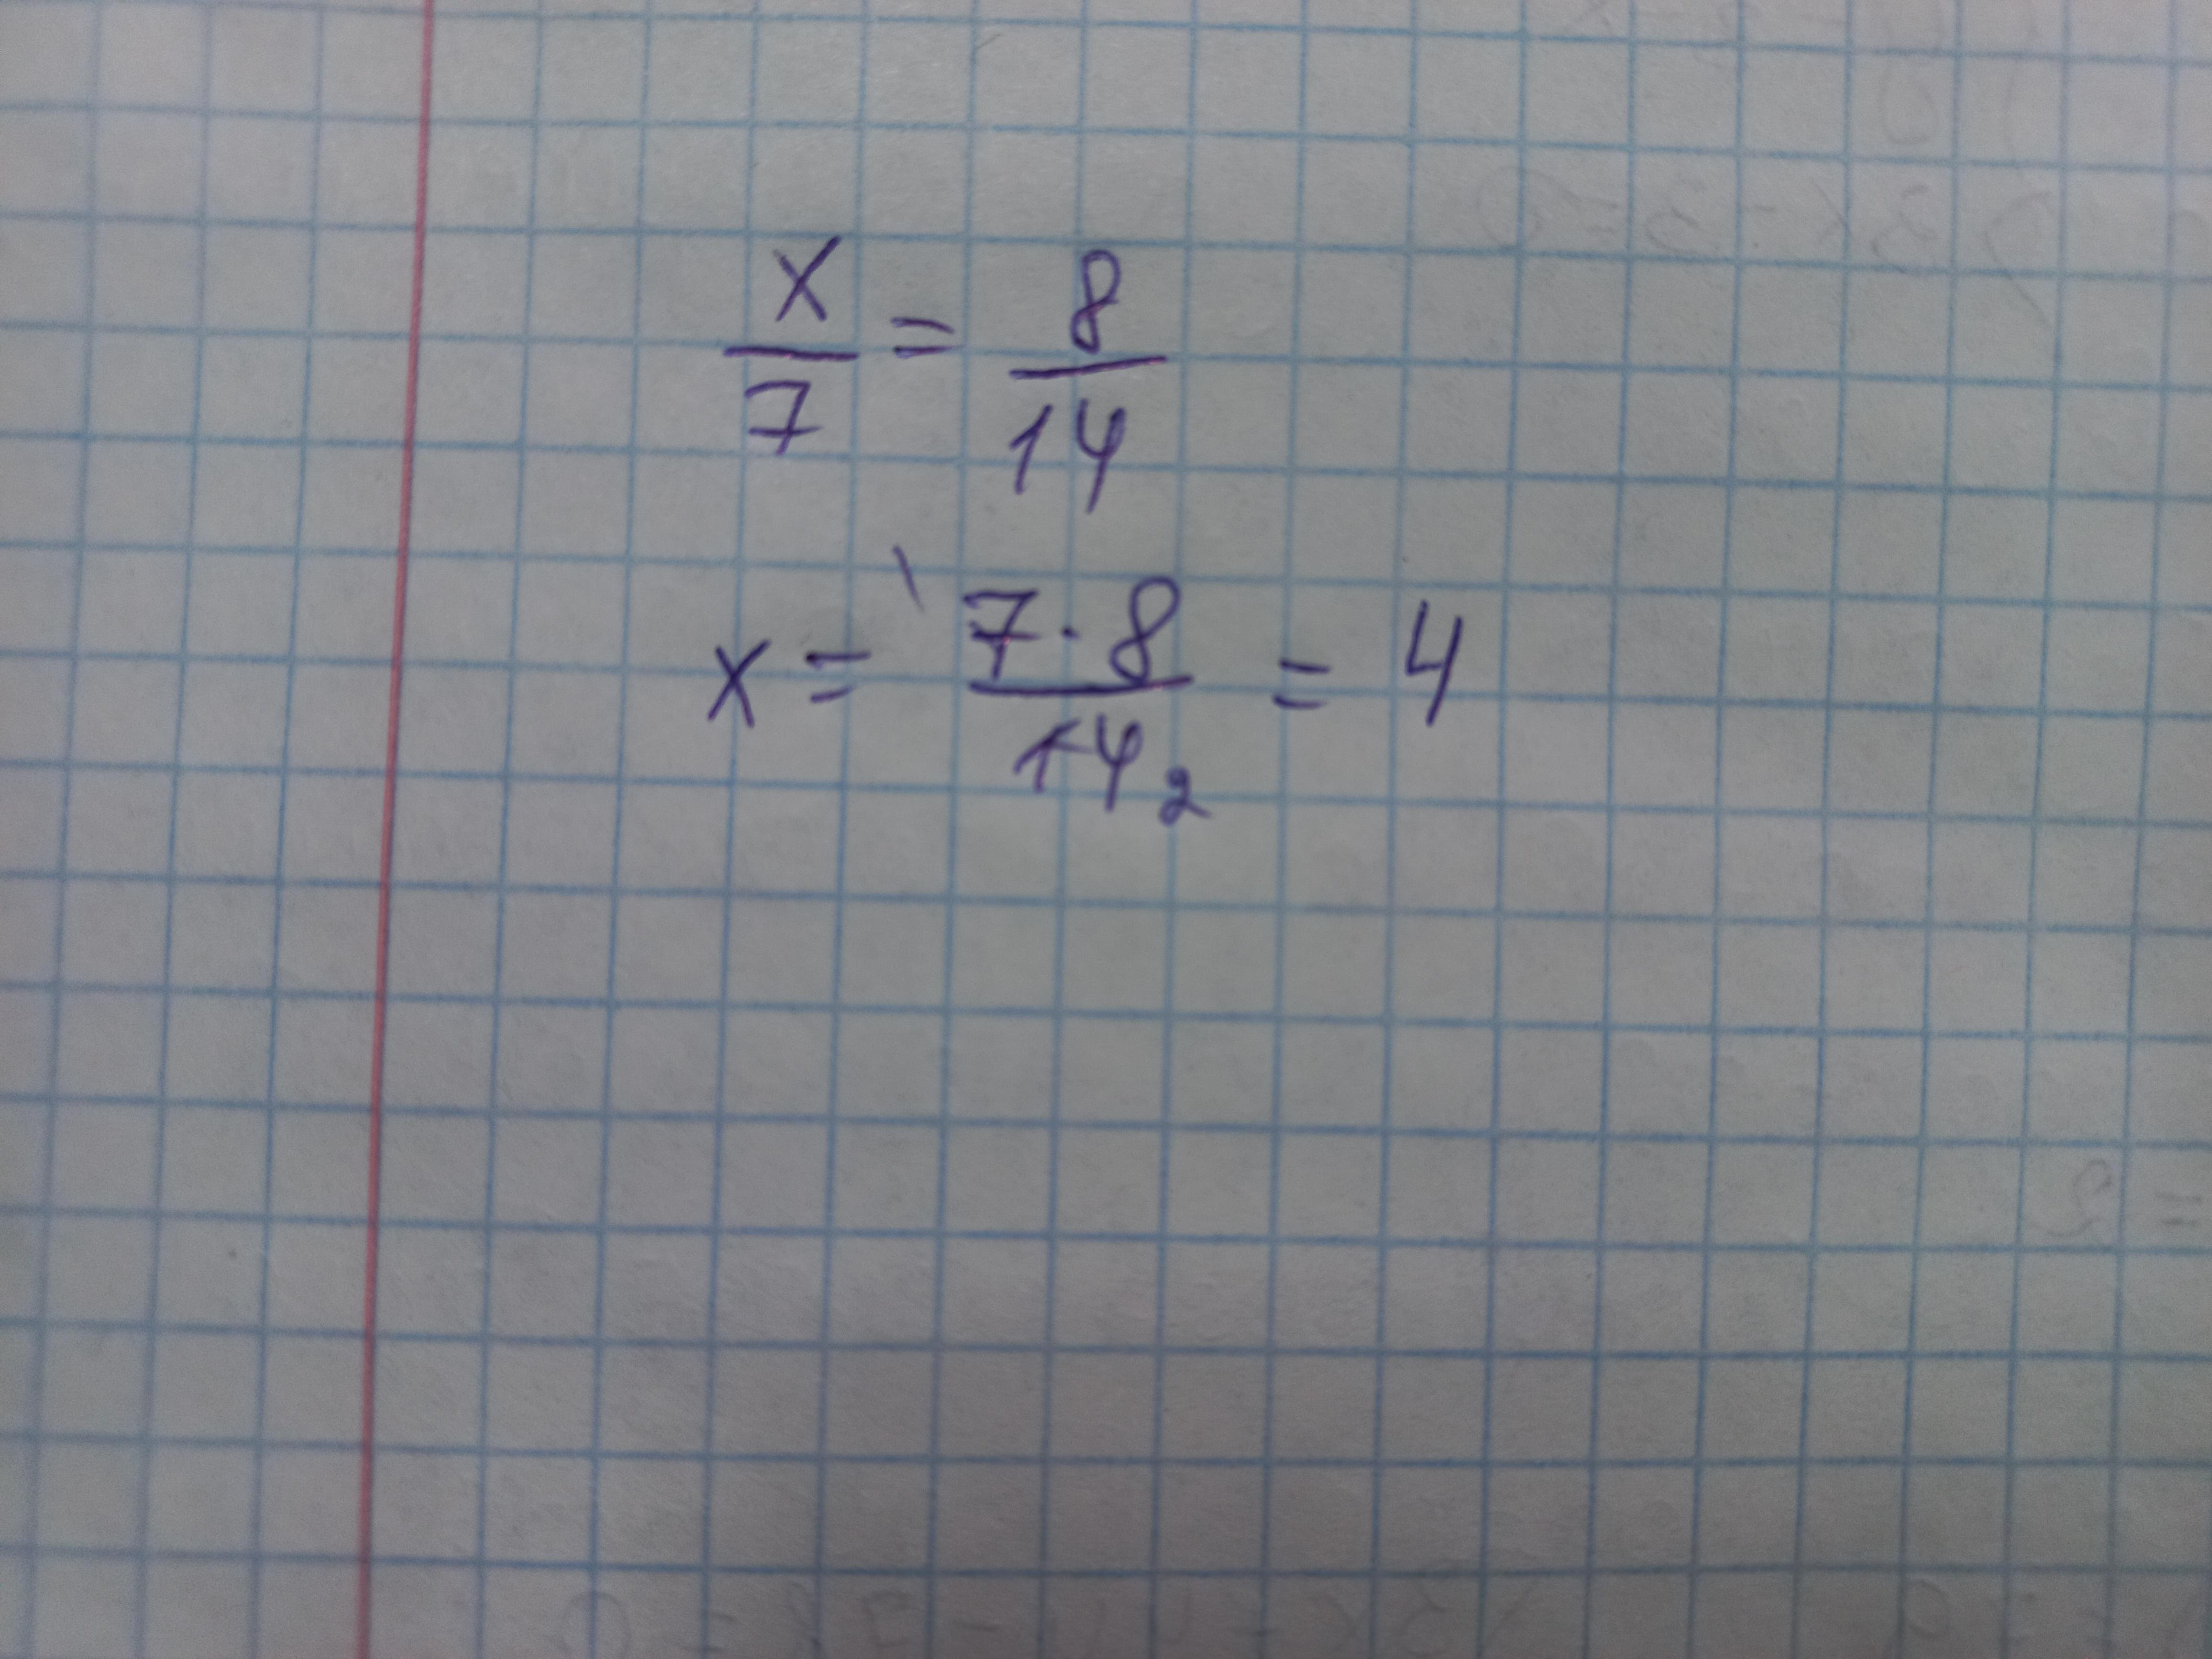 x/7 = 8/14
x = 7·8/14 2 = 4